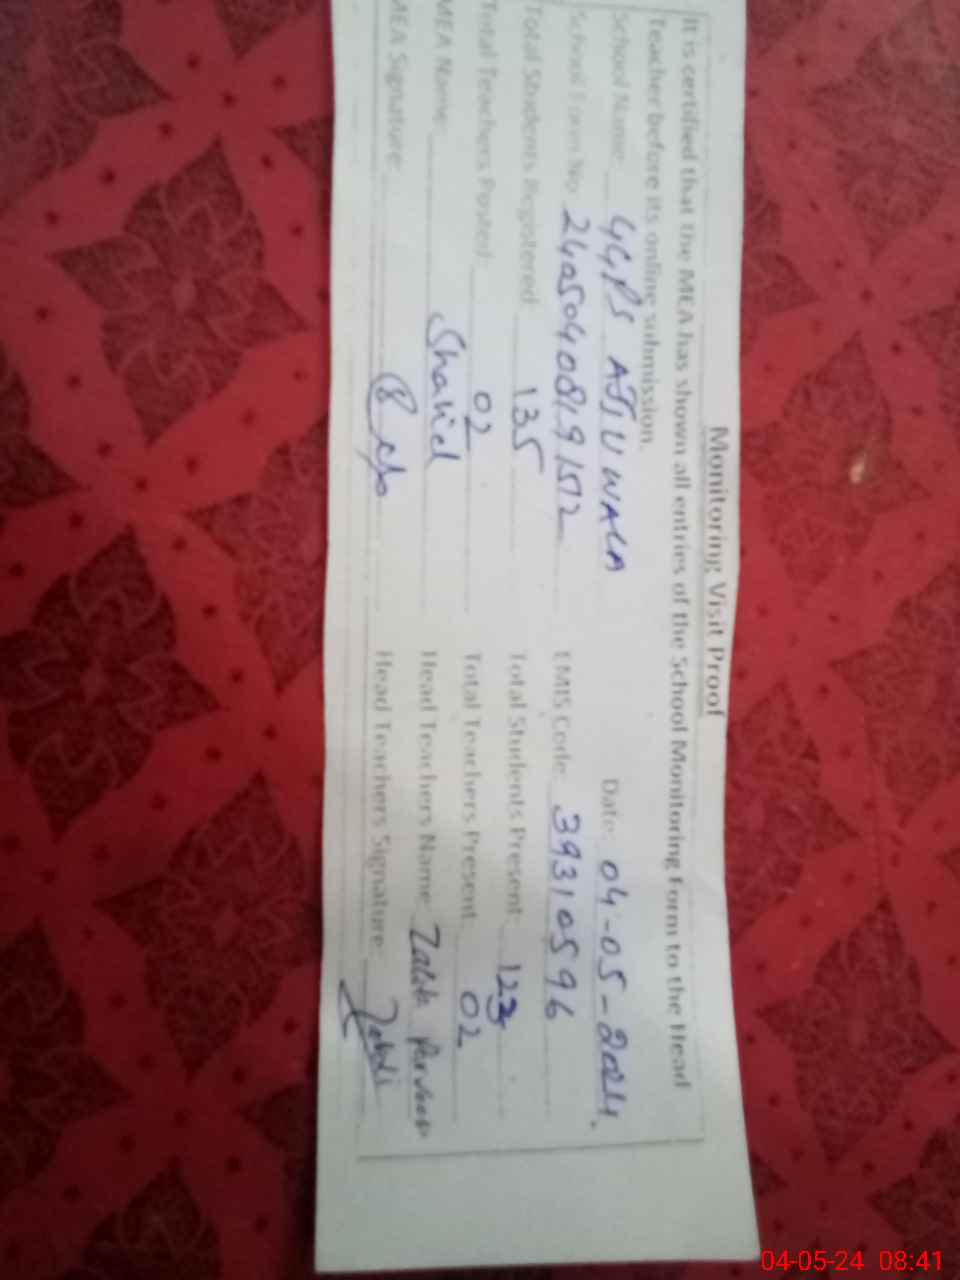 Monitoring Visit Proof
It is certified that the MEA has shown all entries of the School Monitoring Form to the Head
Teacher before its online submission.
School Name: GGPS AJJUWALA Date: 04-05-2024.
School Form No 24050408191512 EMIS Code 39310596
Total Students Registered: 135 Total Students Present: 123
Total Teachers Posted: 02 Total Teachers Present: 02
MEA Name: Shahid Head Teachers Name: Parveen
MEA Signature: Head Teachers Signature:
04-05-24 08:41